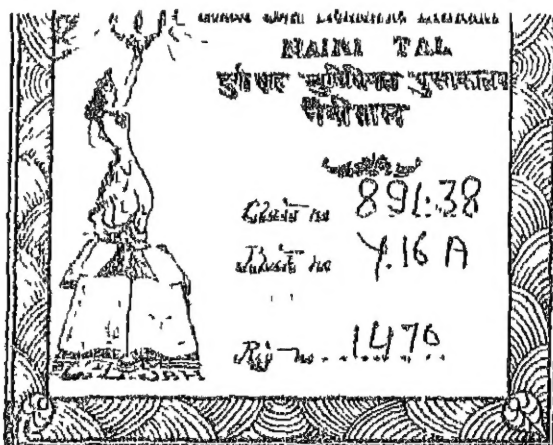 NAINI TAL
दुर्गा साह म्युनिसिपल पुस्तकालय
नैनीताल
Class no 891.38
Book no Y.16 A
Reg no. 1470